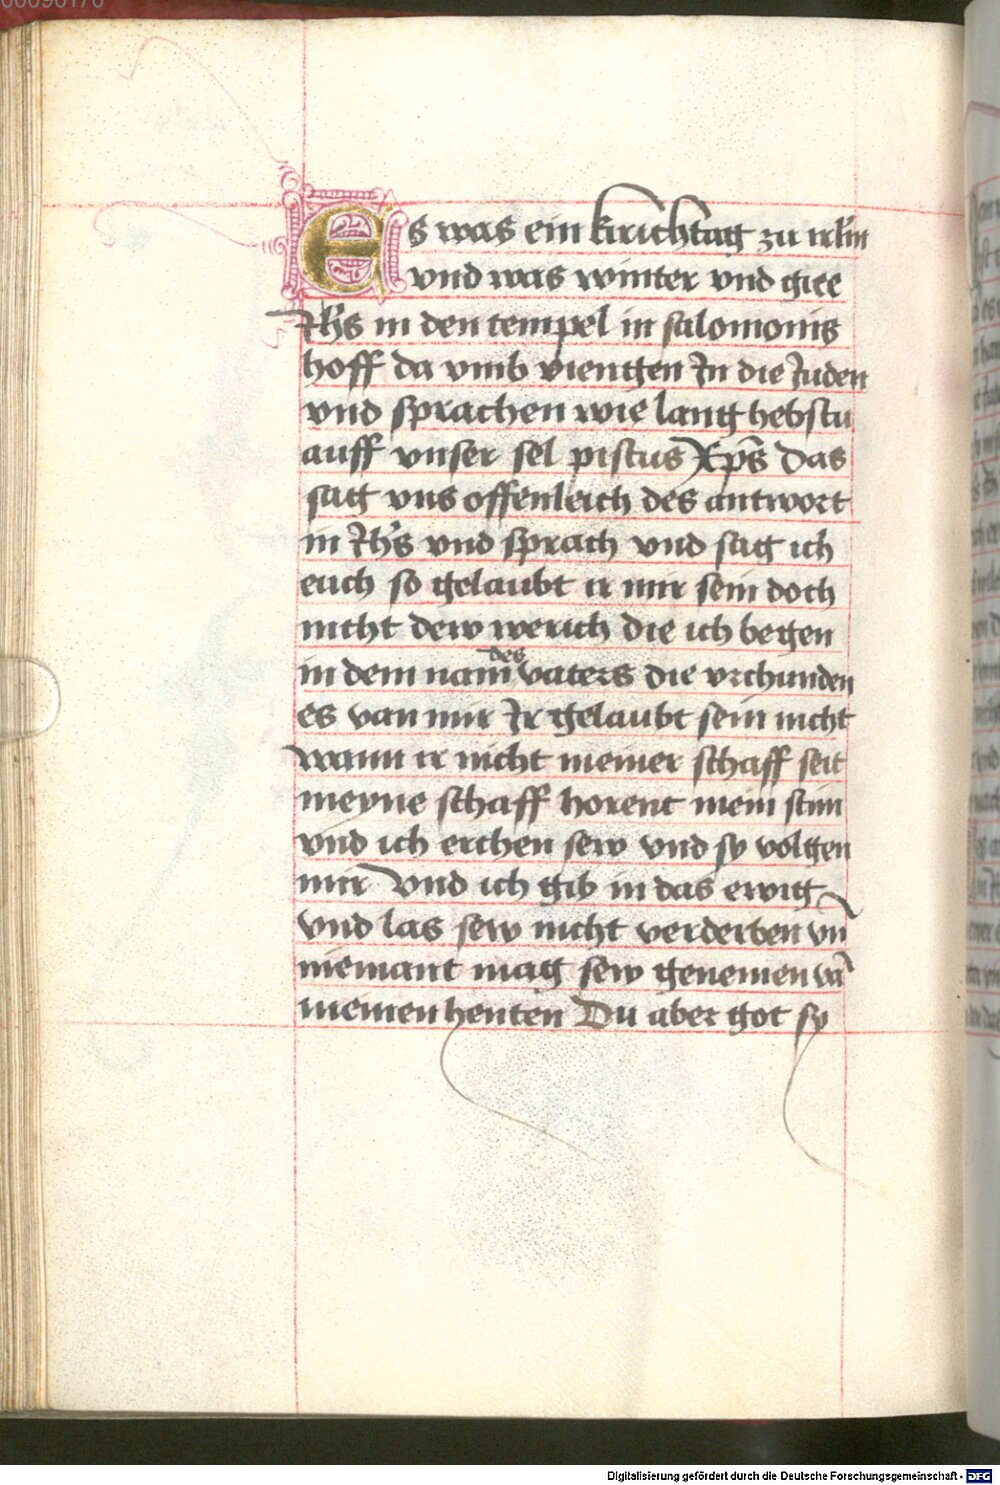 00090170
Es was ein kirichtag zu irl̅m
vnd was winter vnd giee
Jh̅s in den tempel in salomonis
hoff da vmb viengen Jn die Juden
vnd sprachen wie lang hebstu
auff vnser sel pistus Xp̅s das
sag vns offenleich des antwort
in Jh̅s vnd sprach vnd sag ich
euch so gelaubt ir mir sein doch
nicht dew werich die ich begen
in dem nam̅ des vaters die vrchunden
es van mir Jr gelaubt sein nicht
wann ir nicht meiner schaff seit
meyne schaff horent mein stim
vnd ich erchen sew vnd sy volgen
mir Vnd ich gib in das ewig
vnd las sew nicht verderben vn̅
niemant mag sew genemen va̅
meinen henten Du aber got sy
Digitalisierung gefördert durch die Deutsche Forschungsgemeinschaft - DFG